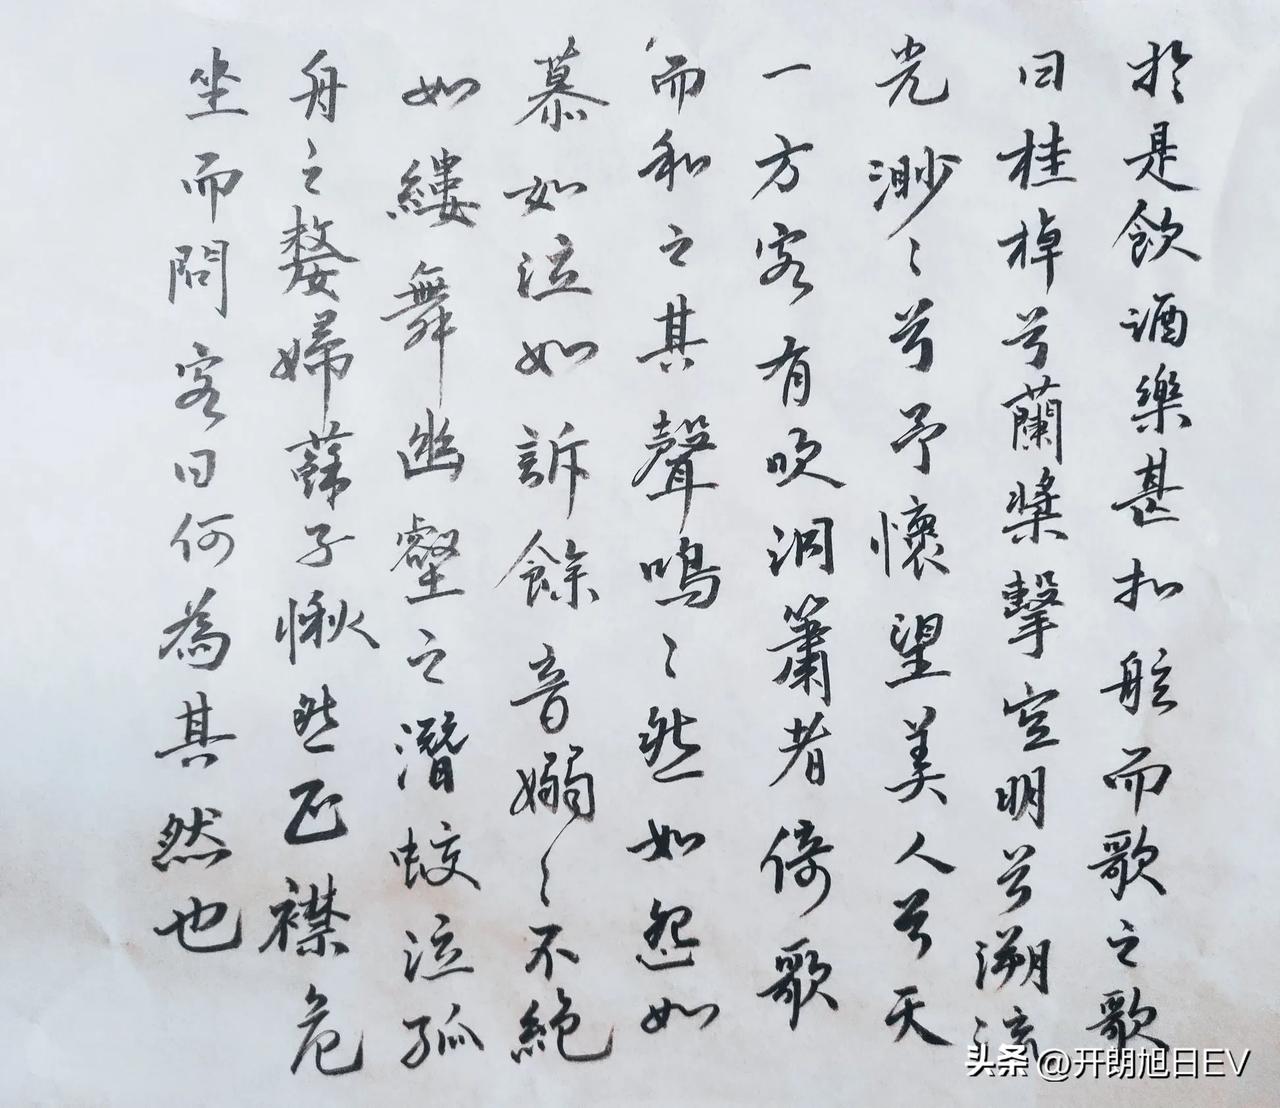 於是飲酒樂甚扣舷而歌之歌
曰桂棹兮蘭槳擊空明兮溯流
光渺〻兮予懷望美人兮天
一方客有吹洞簫者倚歌
而和之其聲鳴〻然如怨如
慕如泣如訴餘音嫋〻不絕
如縷舞幽壑之潛蛟泣孤
舟之嫠婦蘇子愀然正襟危
坐而問客曰何為其然也
头条 @开朗旭日EV